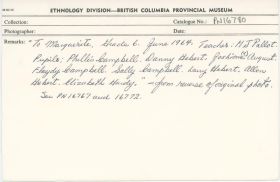 ETHNOLOGY DIVISION—BRITISH COLUMBIA PROVINCIAL MUSEUM
Collection: Catalogue No.: PN16780
Photographer: Date:
Remarks: "To Marguerite, Grade 6. June 1964. Teacher: H J Pallot.
Pupils: Phillis Campbell. Danny Hebert. Joshua August.
Floyd Campbell. Sally Campbell. Larry Hebert. Allen
Hebert. Elizabeth Hardy. — from reverse of original photo.
See PN 16767 and 16772.